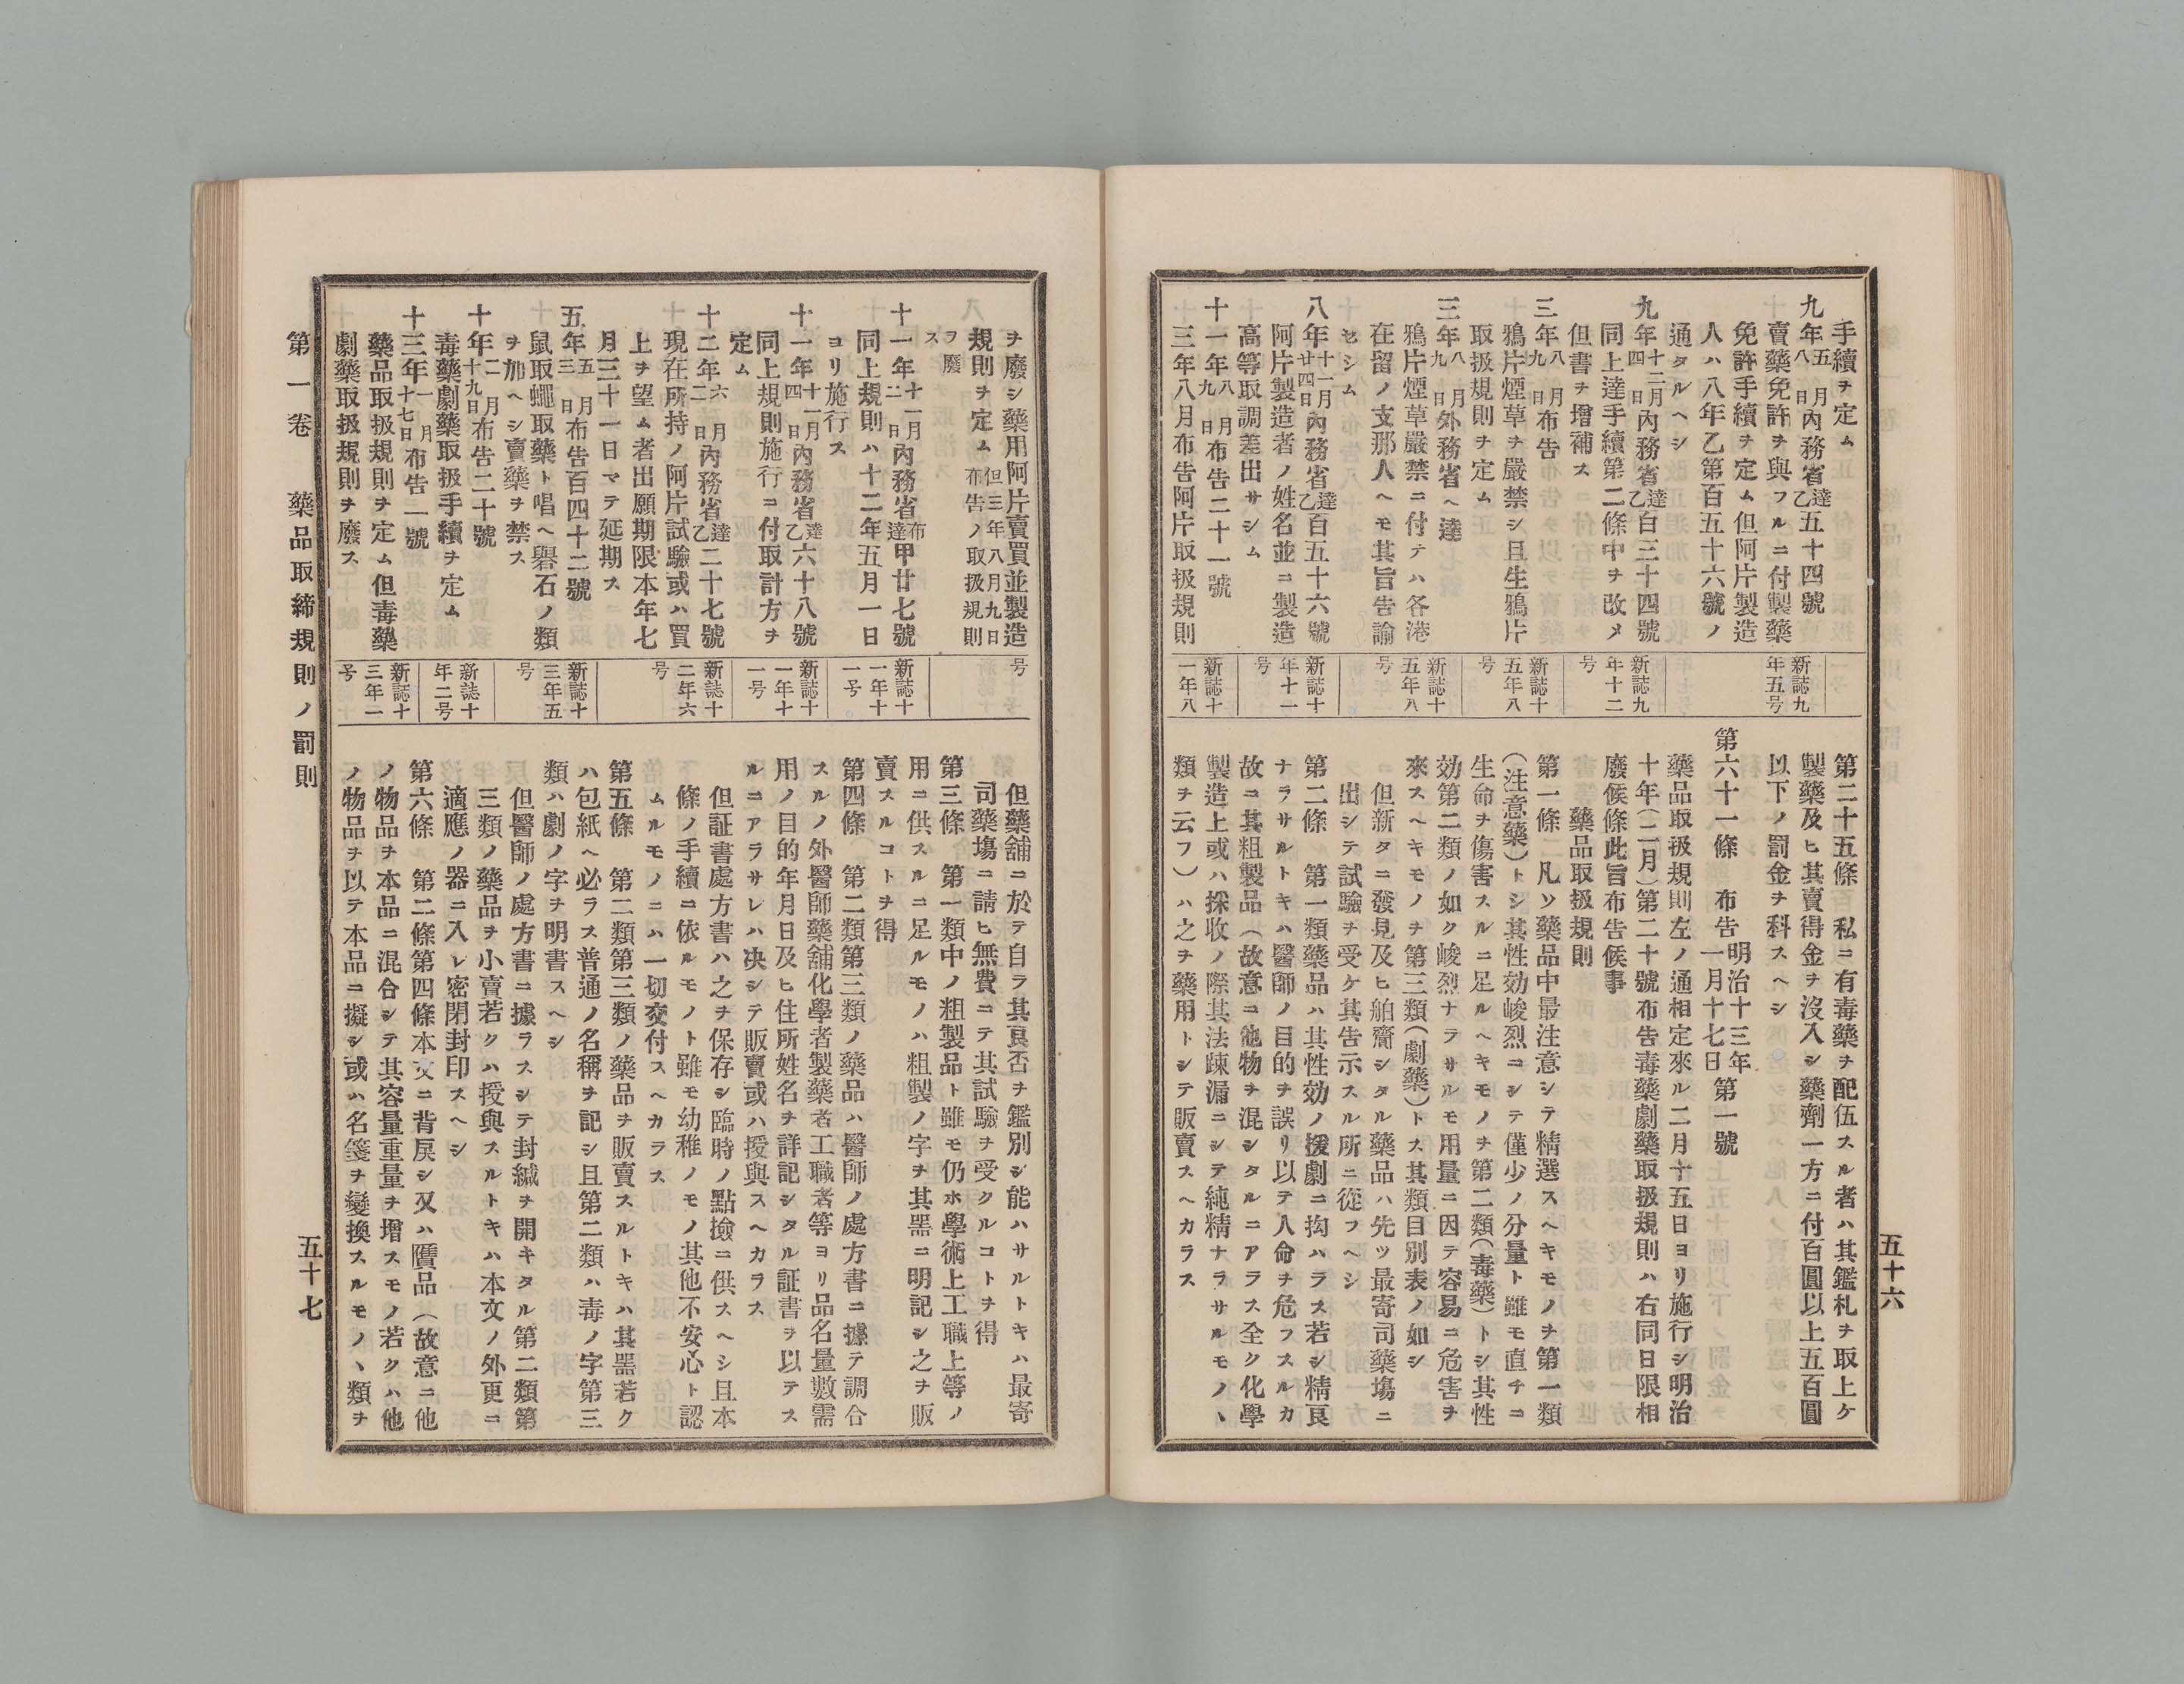 手續ヲ定ム
九年五月八日內務省達乙五十四號
賣藥免許ヲ與フルニ付製藥
免許手續ヲ定ム但阿片製造
人ハ八年乙第百五十六號ノ
通タルヘシ
九年十二月四日內務省達乙百三十四號
同上達手續第二條中ヲ改メ
但書ヲ增補ス
三年八月九日布告
鴉片煙草ヲ嚴禁シ且生鴉片
取扱規則ヲ定ム
三年八月九日外務省ヘ達
鴉片煙草嚴禁ニ付テハ各港
在留ノ支那人ヘモ其旨告諭
セシム
八年十一月廿四日內務省達乙百五十六號
阿片製造者ノ姓名並ニ製造
高等取調差出サシム
十一年八月九日布告二十一號
三年八月布告阿片取扱規則
新誌九年五号
新誌九年十二号
新誌十五年八号
新誌十五年八号
新誌十年十一号
新誌十一年八
第二十五條 私ニ有毒藥ヲ配伍スル者ハ其鑑札ヲ取上ケ
製藥及ヒ其賣得金ヲ沒入シ藥劑一方ニ付百圓以上五百圓
以下ノ罰金ヲ科スヘシ
第六十一條 布告 明治十三年一月十七日 第一號
藥品取扱規則左ノ通相定來ル二月十五日ヨリ施行シ明治
十年(二月)第二十號布告毒藥劇藥取扱規則ハ右同日限相
廢候條此旨布告候事
藥品取扱規則
第一條 凡ソ藥品中最注意シテ精選スヘキモノヲ第一類
(注意藥)トシ其性効峻烈ニシテ僅少ノ分量ト雖モ直チニ
生命ヲ傷害スルニ足ルヘキモノヲ第二類(毒藥)トシ其性
効第二類ノ如ク峻烈ナラサルモ用量ニ因テ容易ニ危害ヲ
來スヘキモノヲ第三類(劇藥)トス其類目別表ノ如シ
但新タニ發見及ヒ舶齎シタル藥品ハ先ツ最寄司藥塲ニ
出シテ試驗ヲ受ケ其告示スル所ニ從フヘシ
第二條 第一類藥品ハ其性効ノ援劇ニ拘ハラス若シ精良
ナラサルトキハ醫師ノ目的ヲ誤リ以テ人命ヲ危フスルカ
故ニ其粗製品(故意ニ他物ヲ混シタルニアラス全ク化學
製造上或ハ採收ノ際其法疎漏ニシテ純精ナラサルモノヽ
類ヲ云フ)ハ之ヲ藥用トシテ販賣スヘカラス
五十六
ヲ廢シ藥用阿片賣買並製造
規則ヲ定ム但三年八月九日布告ノ取扱規則
ヲ廢ス
十一年十一月二日內務省布達甲廿七號
同上規則ハ十二年五月一日
ヨリ施行ス
十一年十一月四日內務省達乙六十八號
同上規則施行ニ付取計方ヲ
定ム
十二年六月二日內務省達乙二十七號
現在所持ノ阿片試驗或ハ買
上ヲ望ム者出願期限本年七
月三十一日マテ延期ス
五年五月三日布告百四十二號
鼠取蠅取藥ト唱ヘ礜石ノ類
ヲ加ヘシ賣藥ヲ禁ス
十年二月十九日布告二十號
毒藥劇藥取扱手續ヲ定ム
十三年一月十七日布告一號
藥品取扱規則ヲ定ム但毒藥
劇藥取扱規則ヲ廢ス
号
新誌十一年十一号
新誌十一年十一号
新誌十二年六号
新誌十三年五号
新誌十年二号
新誌十三年一号
但藥舖ニ於テ自ラ其良否ヲ鑑別シ能ハサルトキハ最寄
司藥塲ニ請ヒ無費ニテ其試驗ヲ受クルコトヲ得
第三條 第一類中ノ粗製品ト雖モ仍ホ學術上工職上等ノ
用ニ供スルニ足ルモノハ粗製ノ字ヲ其噐ニ明記シ之ヲ販
賣スルコトヲ得
第四條 第二類第三類ノ藥品ハ醫師ノ處方書ニ據テ調合
スルノ外醫師藥舖化學者製藥者工職者等ヨリ品名量數需
用ノ目的年月日及ヒ住所姓名ヲ詳記シタル証書ヲ以テス
ルニアラサレハ决シテ販賣或ハ授與スヘカラス
但証書處方書ハ之ヲ保存シ臨時ノ點撿ニ供スヘシ且本
條ノ手續ニ依ルモノト雖モ幼稚ノモノ其他不安心ト認
ムルモノニハ一切交付スヘカラス
第五條 第二類第三類ノ藥品ヲ販賣スルトキハ其噐若ク
ハ包紙ヘ必ラス普通ノ名稱ヲ記シ且第二類ハ毒ノ字第三
類ハ劇ノ字ヲ明書スヘシ
但醫師ノ處方書ニ據ラスシテ封緘ヲ開キタル第二類第
三類ノ藥品ヲ小賣若クハ授與スルトキハ本文ノ外更ニ
適應ノ器ニ入レ密閉封印スヘシ
第六條 第二條第四條本文ニ背戾シ又ハ贋品(故意ニ他
ノ物品ヲ本品ニ混合シテ其容量重量ヲ增スモノ若クハ他
ノ物品ヲ以テ本品ニ擬シ或ハ名箋ヲ變換スルモノヽ類ヲ
第一卷 藥品取締規則ノ罰則
五十七